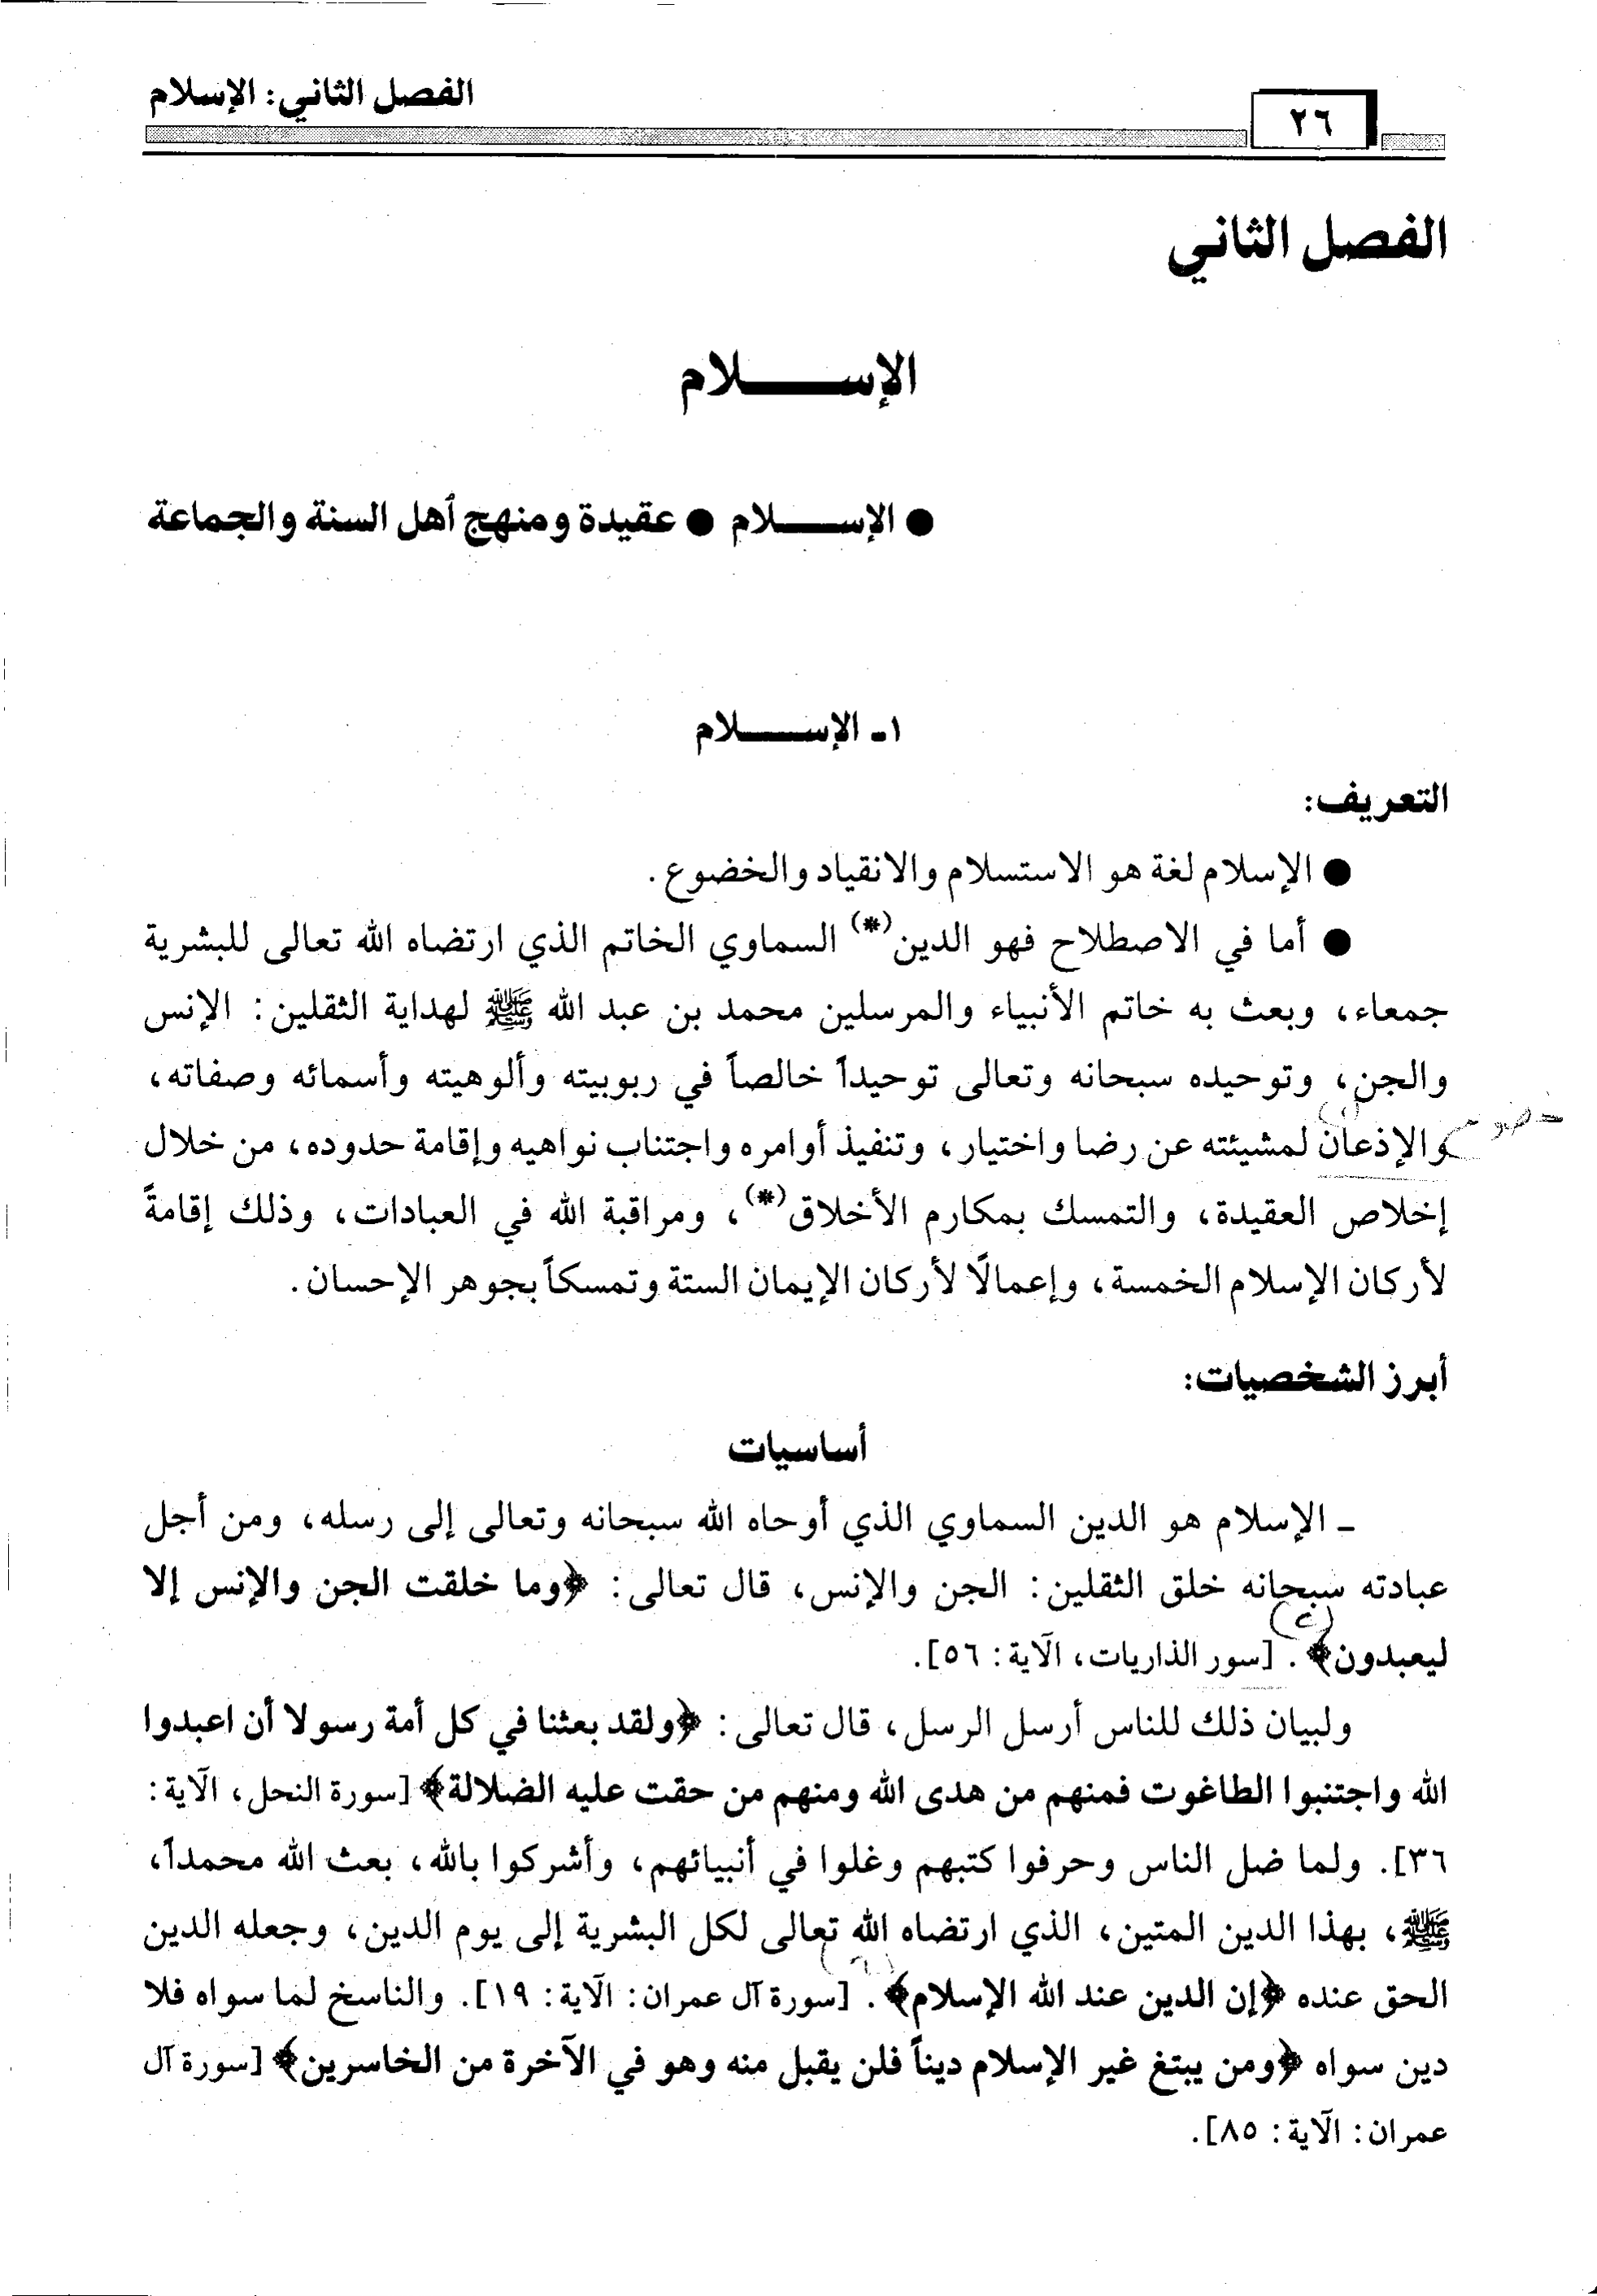 الفصل الثاني: الإسلام
٢٦
الفصل الثاني
الإســـــلام
● الإســـــلام ● عقيدة ومنهج أهل السنة والجماعة
١ـ الإســـــلام
التعريف:
● الإسلام لغة هو الاستسلام والانقياد والخضوع.
● أما في الاصطلاح فهو الدين(*) السماوي الخاتم الذي ارتضاه الله تعالى للبشرية
جمعاء، وبعث به خاتم الأنبياء والمرسلين محمد بن عبد الله ﷺ لهداية الثقلين: الإنس
والجن، وتوحيده سبحانه وتعالى توحيداً خالصاً في ربوبيته وألوهيته وأسمائه وصفاته،
والإذعان لمشيئته عن رضا واختيار، وتنفيذ أوامره واجتناب نواهيه وإقامة حدوده، من خلال
إخلاص العقيدة، والتمسك بمكارم الأخلاق(*)، ومراقبة الله في العبادات، وذلك إقامةً
لأركان الإسلام الخمسة، وإعمالًا لأركان الإيمان الستة وتمسكاً بجوهر الإحسان.
أبرز الشخصيات:
أساسيات
ـ الإسلام هو الدين السماوي الذي أوحاه الله سبحانه وتعالى إلى رسله، ومن أجل
عبادته سبحانه خلق الثقلين: الجن والإنس، قال تعالى: ﴿وما خلقت الجن والإنس إلا
ليعبدون﴾. [سور الذاريات، الآية: ٥٦].
ولبيان ذلك للناس أرسل الرسل، قال تعالى: ﴿ولقد بعثنا في كل أمة رسولا أن اعبدوا
الله واجتنبوا الطاغوت فمنهم من هدى الله ومنهم من حقت عليه الضلالة﴾ [سورة النحل، الآية:
٣٦]. ولما ضل الناس وحرفوا كتبهم وغلوا في أنبيائهم، وأشركوا بالله، بعث الله محمداً،
ﷺ، بهذا الدين المتين، الذي ارتضاه الله تعالى لكل البشرية إلى يوم الدين، وجعله الدين
الحق عنده ﴿إن الدين عند الله الإسلام﴾. [سورة آل عمران: الآية: ١٩]. والناسخ لما سواه فلا
دين سواه ﴿ومن يبتغ غير الإسلام ديناً فلن يقبل منه وهو في الآخرة من الخاسرين﴾ [سورة آل
عمران: الآية: ٨٥].